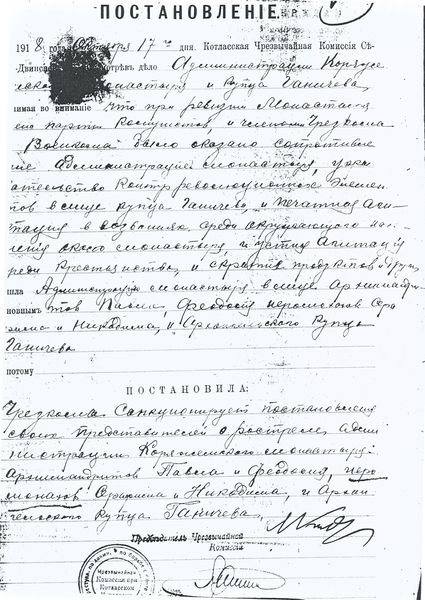 ПОСТАНОВЛЕНІЕ.
1918 года Октября 17го дня. Котласская Чрезвычайная Комиссія Сѣ-
Двинск дѣло Администрации Коряже
монастыря и Купца Ганичева,
имая во вниманіе что при ревизии Монастыря
партии Коммунистов, и членами Чрезкома
было оказано сопротивле
ние администрацией монастыря, укра
тельство Контр революционных Элемен
тов в лице купца Ганичева, и печатная Аги
тация в воззваниях среди окружающего насе
ления монастыря и устная Агитация
реди Крестьянства, и скрытие продуктов и други
шла Администрацию монастыря в лице Архимандри
новнымъ тов Павла, Феодосия иеромонахов Сера
фима и Никодима, и Архангельского Купца
Ганичева
потому
ПОСТАНОВИЛА:
Чрезкома Санкционирует постановления
своих представителей о расстреле Адми
нистрации Коряжемского монастыря:
Архимандритов Павла и Феодосия, иеро
монахов Серафима и Никодима, и Архан
гельского купца Ганичева,
Предсѣдатель Чрезвычайной
Комиссіи
Чрезвычайная
Комиссія при
Котласском